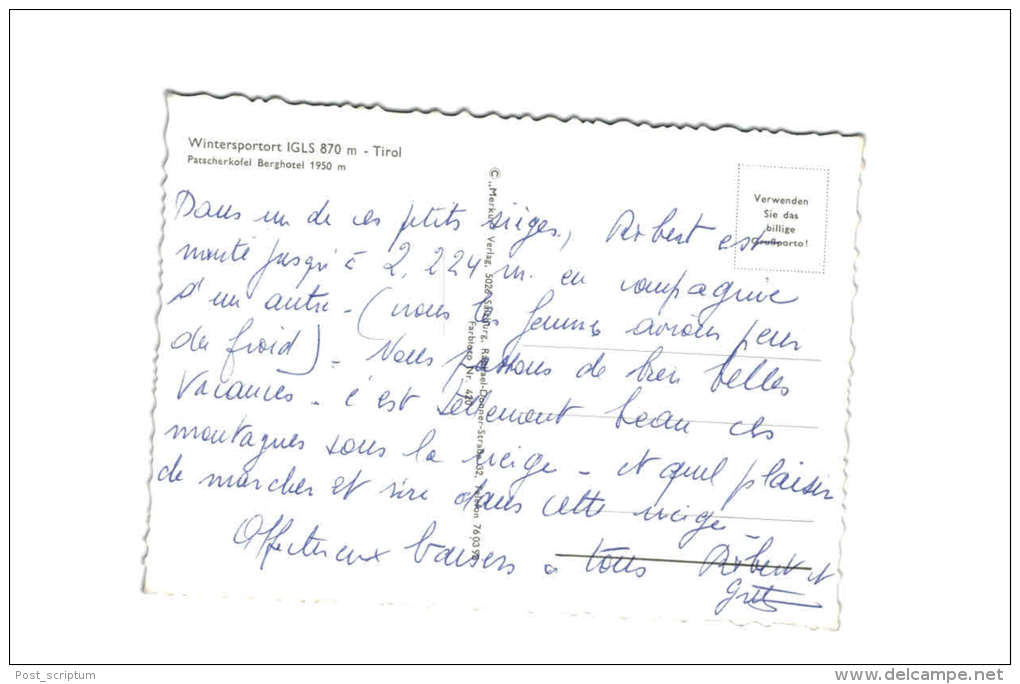 Wintersportort IGLS 870 m - Tirol
Patscherkofel Berghotel 1950 m
Verwenden
Sie das
billige
Grußporto!
© „Merkur" Verlag, 5020 Salzburg, Raphael-Donner-Straße 32, Telefon 76039
Farbfoto Nr. 420
Dans un de ces ptits sièges, Robert est
monté jusqu'à 2.224 m. en compagnie
d'un autre - (nous les femmes avions peur
du froid) - Nous passons de bien belles
vacances - c'est tellement beau ces
montagnes sous la neige - et quel plaisir
de marcher et rire dans cette neige
Affectueux baisers à tous Robert et
Post_scriptum
www.delcampe.net